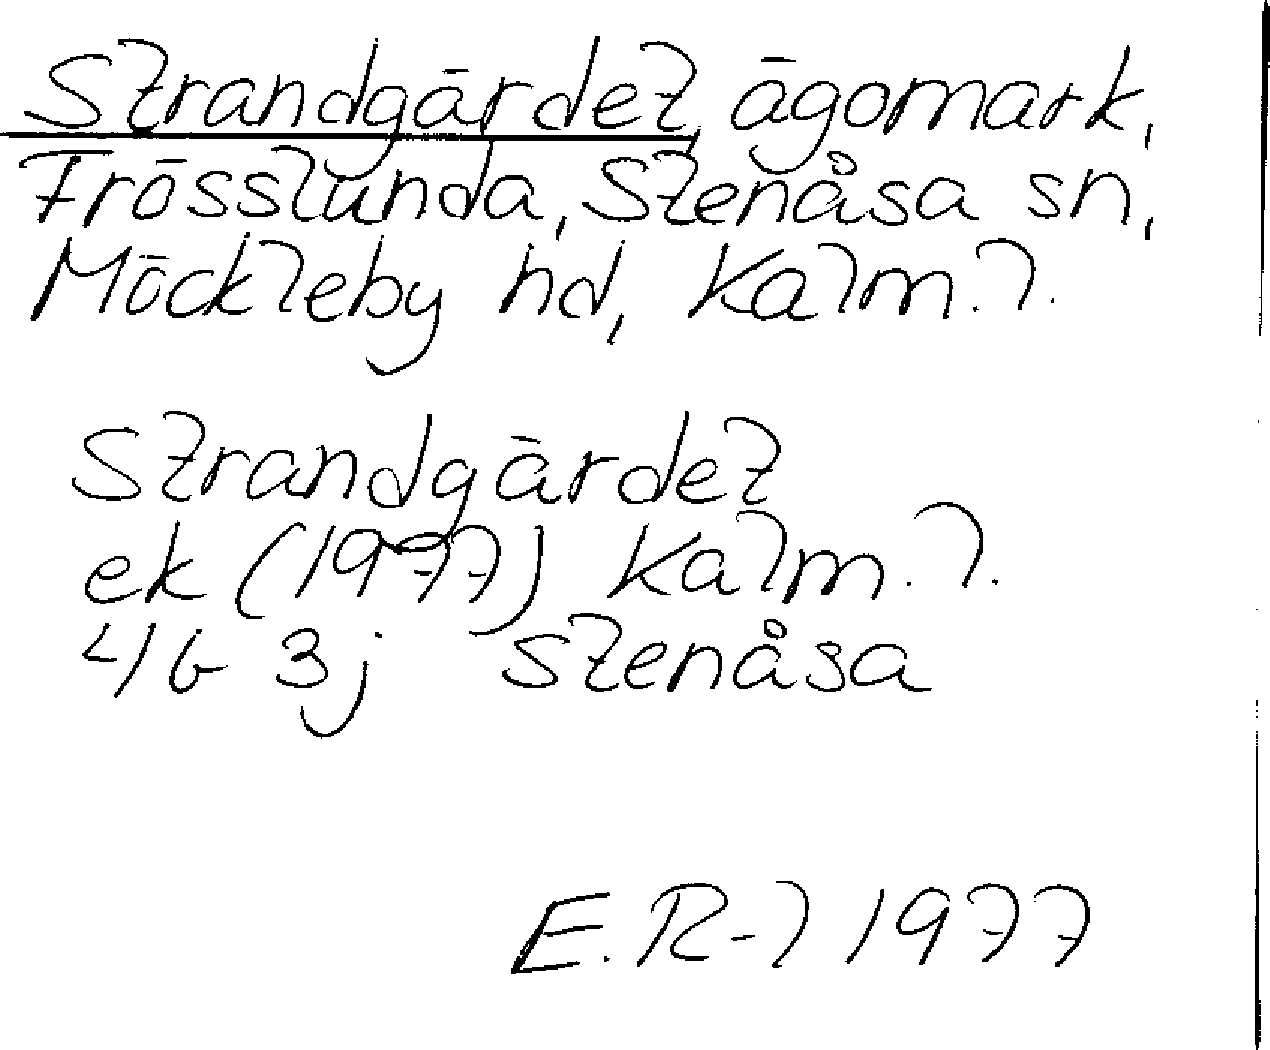 Strandgärdet, ägomark,
Frösslunda, Stenåsa sn,
Möckleby hd, Kalm. l.
Strandgärdet
ek (1977) Kalm. l.
4G 3j Stenåsa
E. R-l 1977